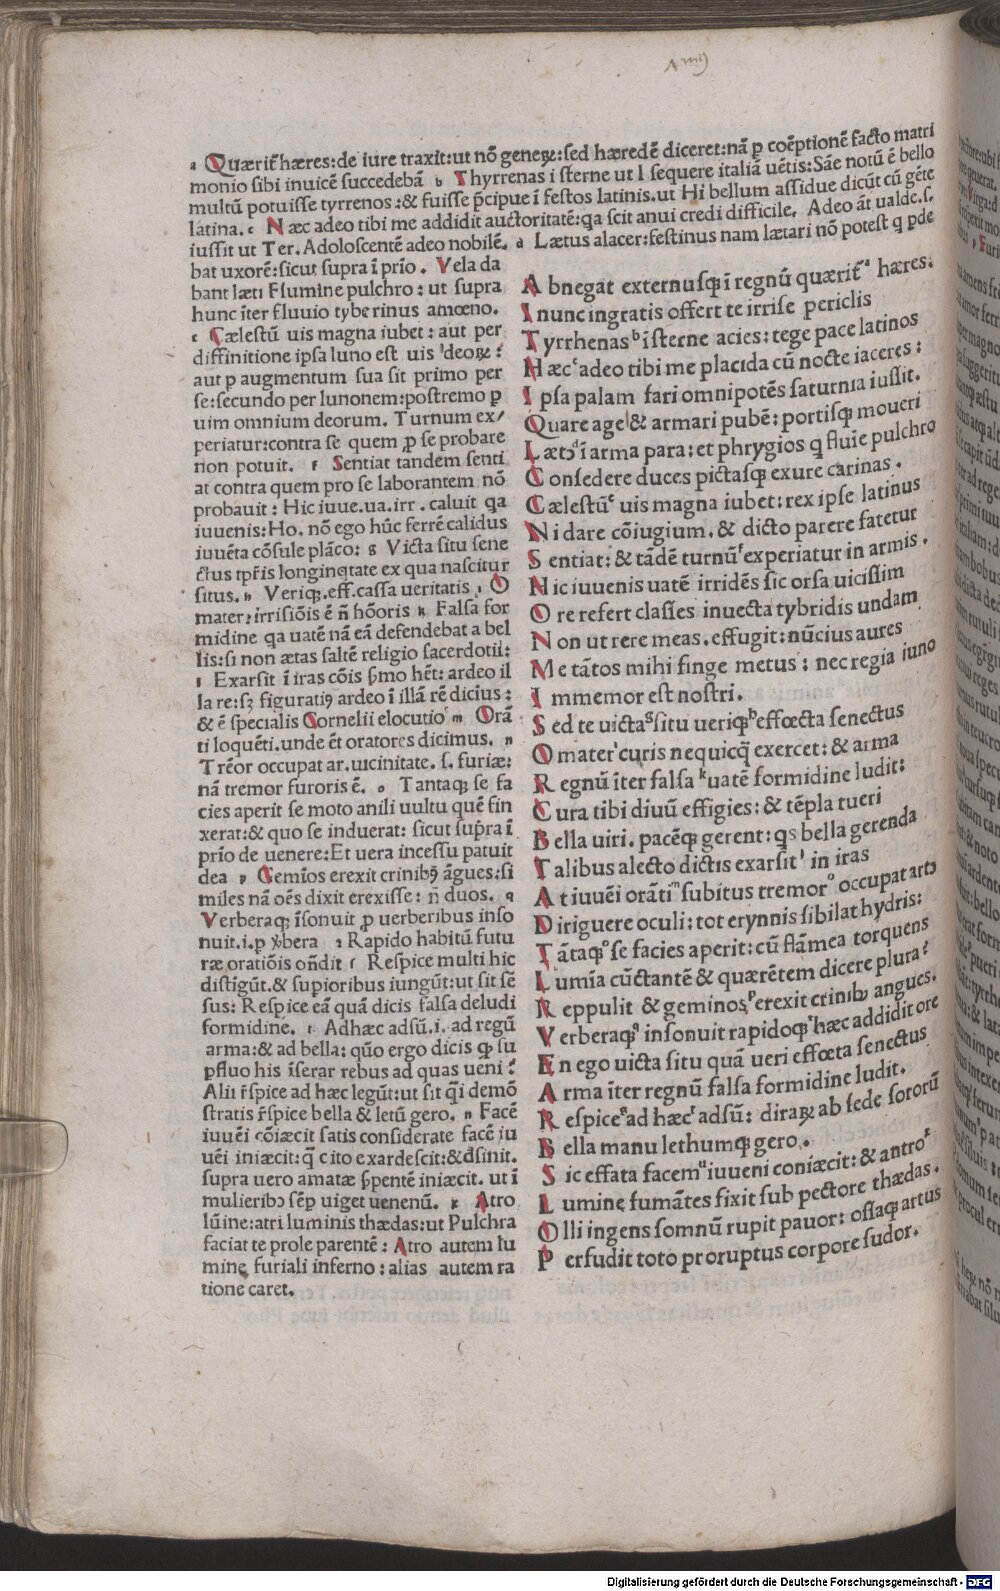 a Quærit̃ hæres: de iure traxit: ut nõ geneꝝ: sed hæredẽ diceret: nã ꝑ coẽptionẽ facto matri
monio sibi inuicẽ succedebã b Thyrrenas i sterne ut I sequere italiã uẽtis: Sãe notũ ẽ bello
multũ potuisse tyrrenos: & fuisse p̃cipue ĩ festos latinis. ut Hi bellum assidue dicũt cũ gẽte
latina. c Næc adeo tibi me addidit auctoritatẽ: qa scit anui credi difficile. Adeo ãt ualde. s.
iussit ut Ter. Adoloscentẽ adeo nobilẽ. a Lætus alacer: festinus nam lætari nõ potest q pde
bat uxorẽ: sicut supra ĩ prĩo. Vela da
bant læti Flumine pulchro: ut supra
hunc ĩter fluuio tyberinus amœno.
e Cælestũ uis magna iubet: aut per
diffinitione ipsa Iuno est uis deoꝝ:
aut p augmentum sua sit primo per
se: secundo per Iunonem: postremo ꝑ
uim omnium deorum. Turnum ex/
periatur: contra se quem ꝓ se probare
non potuit. f Sentiat tandem senti
at contra quem pro se laborantem nõ
probauit: Hic iuue. ua. irr. caluit qa
iuuenis: Ho. nõ ego hũc ferrẽ calidus
iuuẽta cõsule plãco: g Victa situ sene
ctus tp̃ris longinqtate ex qua nascitur
situs. h Veriq;. eff. cassa ueritatis i O
mater: irrisiõis ẽ ñ hõoris k Falsa for
midine qa uatẽ nã eã defendebat a bel
lis: si non ætas saltẽ religio sacerdotii:
l Exarsit ĩ iras cõis p̃mo hẽt: ardeo il
la re: sꝫ figuratiꝰ ardeo ĩ illã rẽ diciꝰs:
& ẽ specialis Cornelii elocutio m Orã
ti loquẽti. unde ẽt oratores dicimus. n
Trẽor occupat ar. uicinitate. s. furiæ:
nã tremor furoris ẽ. o Tantaq; se fa
cies aperit se moto anili uultu quẽ fin
xerat: & quo se induerat: sicut sup̃ra ĩ
prĩo de uenere: Et uera incessu patuit
dea p Gemĩos erexit crinibꝰ ãgues: si
miles nã oẽs dixit erexisse: ñ duos. q
Verberaq; ĩsonuit ꝓ uerberibus inso
nuit. i. p ũbera r Rapido habitũ futu
ræ oratiõis oñdit s Respice multi hic
distigũt. & supioribus iungũt: ut sit sẽ
sus: Respice eã quã dicis falsa deludi
formidine. t Adhæc adsũ. i. ad regũ
arma: & ad bella: qũo ergo dicis qp su
pfluo his ĩserar rebus ad quas ueni:
Alii r̃spice ad hæc legũt: ut sit q̃i demõ
stratis r̃spice bella & letũ gero. u Facẽ
iuuẽi cõiæcit satis considerate facẽ iu
uẽi iniæcit: q̃ cito exardescit: & d̃sinit.
supra uero amatæ s̃pentẽ iniæcit. ut ĩ
mulieribꝰ sẽp uiget uenenũ. x Atro
lũine: atri luminis thædas: ut Pulchra
faciat te prole parentẽ: Atro autem lu
mine furiali inferno: alias autem ra
tione caret.
Abnegat externusq; ĩ regnũ quærit̃ a hæres:
I nunc ingratis offert te irrise periclis
Tyrrhenas b ĩ sterne acies: tege pace latinos
Hæc c adeo tibi me placida cũ nocte iaceres:
Ipsa palam fari omnipotẽs saturnia iussit.
Quare age & armari pubẽ: portisq; moueri
Lætꝰ d ĩ arma para: et phrygios q fluĩe pulchro
Consedere duces pictasq; exure carinas.
Cælestũ e uis magna iubet: rex ipse latinus
Ni dare cõiugium. & dicto parere fatetur
Sentiat: & tãdẽ turnũ f experiatur in armis.
Nic iuuenis uatẽ irridẽs sic orsa uicissim
Ore refert classes inuecta tybridis undam
Non ut rere meas. effugit: nũcius aures
Me tãtos mihi finge metus: nec regia iuno
Immemor est nostri.
Sed te uicta g situ ueriq; h effœcta senectus
O mater i curis nequicq̃ exercet: & arma
Regnũ ĩter falsa k uatẽ formidine ludit:
Cura tibi diuũ effigies: & tẽpla tueri
Bella uiri. pacẽq; gerent: qs bella gerenda
Talibus alecto dictis exarsit l in iras
At iuuẽi orãti m subitus tremor n occupat artꝰ
Diriguere oculi: tot erynnis sibilat hydris:
Tãtaq; o se facies aperit: cũ flãmea torquens
Lumĩa cũctantẽ & quærẽtem dicere plura:
Reppulit & geminos p erexit crinibꝰ angues.
Verberaq; q insonuit rapidoq; r hæc addidit ore
En ego uicta situ quã ueri effœta senectus
Arma ĩter regnũ falsa formidine ludit.
Respice s ad hæc t adsũ: diraꝝ ab sede sororũ
Bella manu lethumq; gero.
Sic effata facem u iuueni coniæcit: & antro x
Lumine fumãtes fixit sub pectore thædas.
Olli ingens somnũ rupit pauor: ossaq; artus
Perfudit toto proruptus corpore sudor.
Digitalisierung gefördert durch die Deutsche Forschungsgemeinschaft - DFG